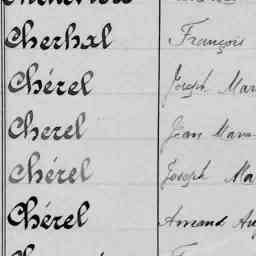 Cherhal François
Chérel Joseph Mar
Cherel Jean Marie
Chérel Joseph Ma
Chérel Armand Au